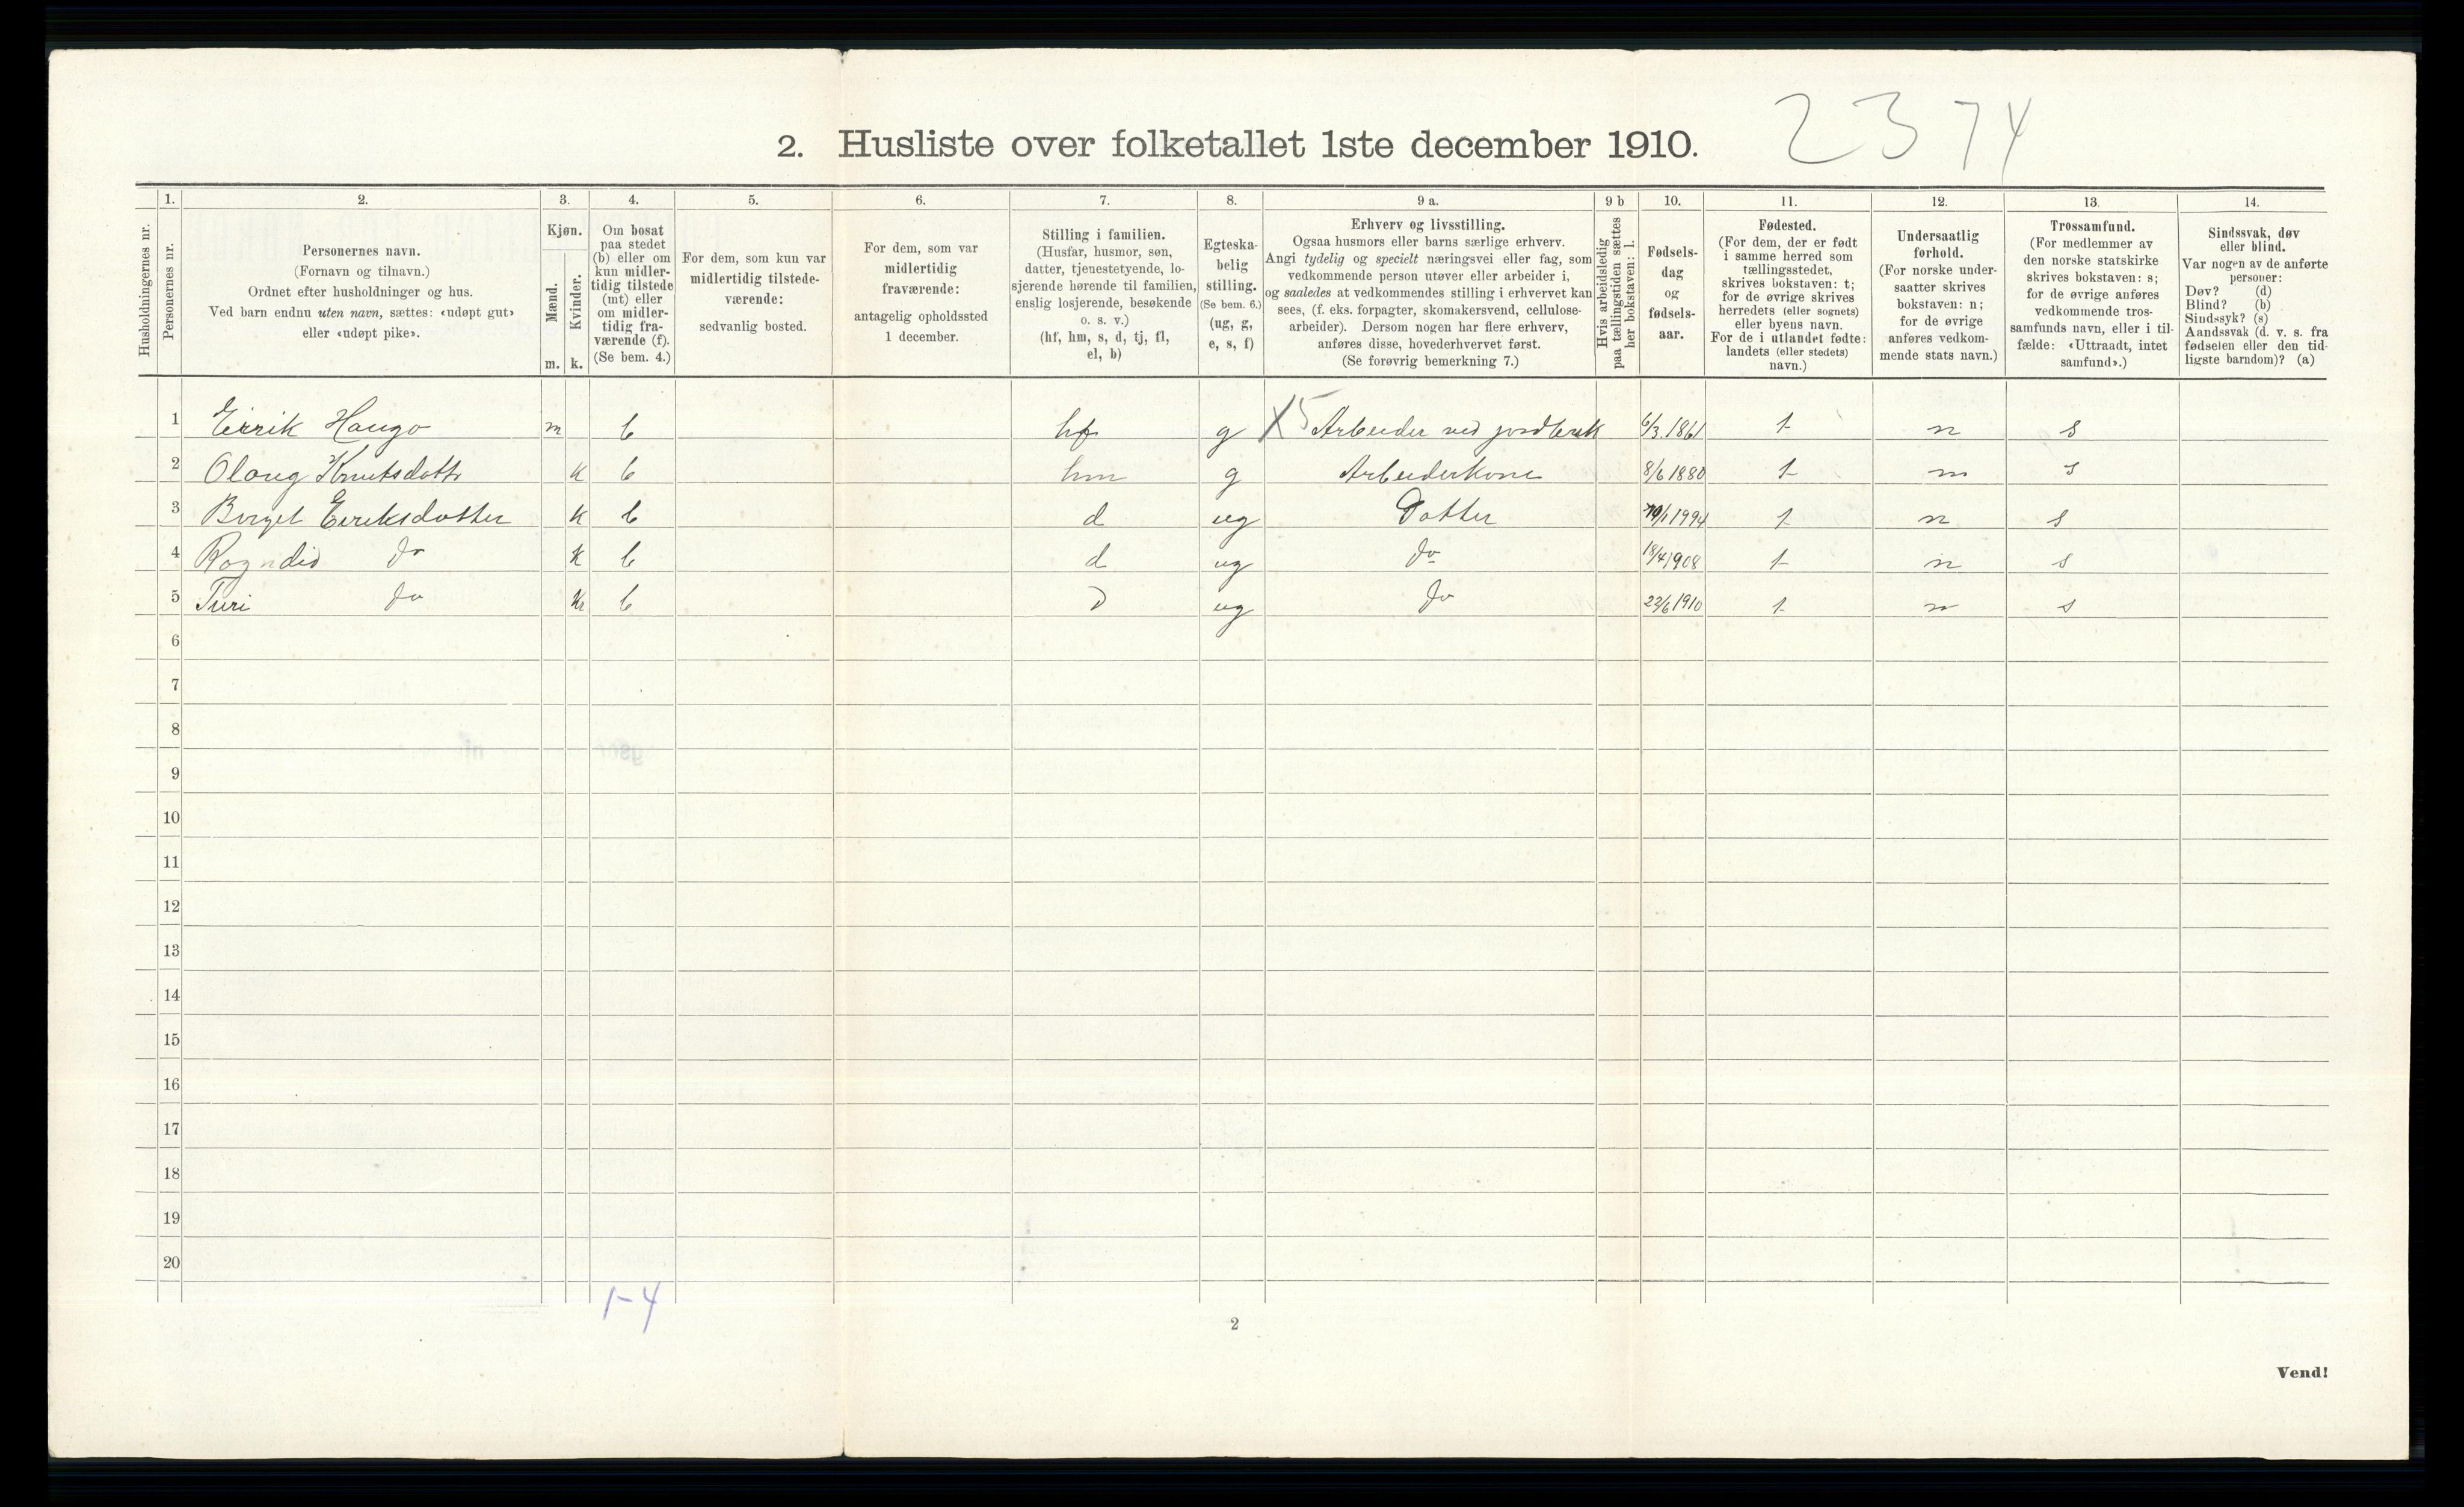 2. Husliste over folketallet 1ste december 1910. 2374
Husholdningernes nr.
1.
Personernes nr.
2.
Personernes navn.
(Fornavn og tilnavn.)
Ordnet efter husholdninger og hus.
Ved barn endnu uten navn, sættes: «udøpt gut»
eller «udøpt pike».
3.
Kjøn.
Mænd.
m.
Kvinder.
k.
4.
Om bosat
paa stedet
(b) eller om
kun midler-
tidig tilstede
(mt) eller
om midler-
tidig fra-
værende (f).
(Se bem. 4.)
5.
For dem, som kun var
midlertidig tilstede-
værende:
sedvanlig bosted.
6.
For dem, som var
midlertidig
fraværende:
antagelig opholdssted
1 december.
7.
Stilling i familien.
(Husfar, husmor, søn,
datter, tjenestetyende, lo-
sjerende hørende til familien,
enslig losjerende, besøkende
o. s. v.)
(hf, hm, s, d, tj, fl,
el, b)
8.
Egteska-
belig
stilling.
(Se bem. 6.)
(ug, g,
e, s, f)
9 a.
Erhverv og livsstilling.
Ogsaa husmors eller barns særlige erhverv.
Angi tydelig og specielt næringsvei eller fag, som
vedkommende person utøver eller arbeider i,
og saaledes at vedkommendes stilling i erhvervet kan
sees, (f. eks. forpagter, skomakersvend, cellulose-
arbeider). Dersom nogen har flere erhverv,
anføres disse, hovederhvervet først.
(Se forøvrig bemerkning 7.)
9 b
Hvis arbeidsledig
paa tællingstiden sættes
her bokstaven: l.
10.
Fødsels-
dag
og
fødsels-
aar.
11.
Fødested.
(For dem, der er født
i samme herred som
tællingsstedet,
skrives bokstaven: t;
for de øvrige skrives
herredets (eller sognets)
eller byens navn.
For de i utlandet fødte:
landets (eller stedets)
navn.)
12.
Undersaatlig
forhold.
(For norske under-
saatter skrives
bokstaven: n;
for de øvrige
anføres vedkom-
mende stats navn.)
13.
Trossamfund.
(For medlemmer av
den norske statskirke
skrives bokstaven: s;
for de øvrige anføres
vedkommende tros-
samfunds navn, eller i til-
fælde: «Uttraadt, intet
samfund».)
14.
Sindssvak, døv
eller blind.
Var nogen av de anførte
personer:
Døv? (d)
Blind? (b)
Sindssyk? (s)
Aandssvak (d. v. s. fra
fødselen eller den tid-
ligste barndom)? (a)
1 Eirik Haugo m b hf g X5 Arbeider ved jordbruk 6/3.1861 t n s
2 Olaug Knutsdottr k b hm g Arbeiderkone 8/6 1880 t n s
3 Birgit Eiriksdotter k b d ug Dotter /1 1994 t n s
4 Rogndid do k b d ug do 18/4 1908 t n s
5 Turi do k b d ug do 22/6 1910 t n s
6
7
8
9
10
11
12
13
14
15
16
17
18
19
20
1-4
2
Vend!